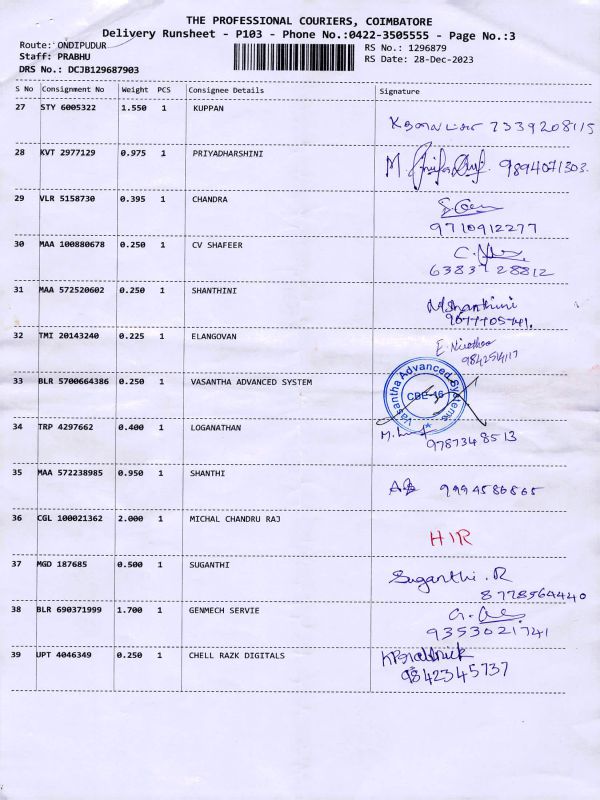 THE PROFESSIONAL COURIERS, COIMBATORE
Delivery Runsheet - P103 - Phone No.:0422-3505555 - Page No.:3
Route: ONDIPUDUR RS No.: 1296879
Staff: PRABHU RS Date: 28-Dec-2023
DRS No.: DCJB129687903
S No Consignment No Weight PCS Consignee Details Signature
27 STY 6005322 1.550 1 KUPPAN
7339208115
28 KVT 2977129 0.975 1 PRIYADHARSHINI
M. 9894071303.
29 VLR 5158730 0.395 1 CHANDRA
9710912277
30 MAA 100880678 0.250 1 CV SHAFEER
6383728812
31 MAA 572520602 0.250 1 SHANTHINI
Shanthini
32 TMI 20143240 0.225 1 ELANGOVAN
E.
33 BLR 5700664386 0.250 1 VASANTHA ADVANCED SYSTEM
Vasantha Advanced Systems
CBE-16
34 TRP 4297662 0.400 1 LOGANATHAN
9787348513
35 MAA 572238985 0.950 1 SHANTHI
36 CGL 100021362 2.000 1 MICHAL CHANDRU RAJ
HIR
37 MGD 187685 0.500 1 SUGANTHI
Suganthi.R
8778564440
38 BLR 690371999 1.700 1 GENMECH SERVIE
9353021741
39 UPT 4046349 0.250 1 CHELL RAZK DIGITALS
9842345737